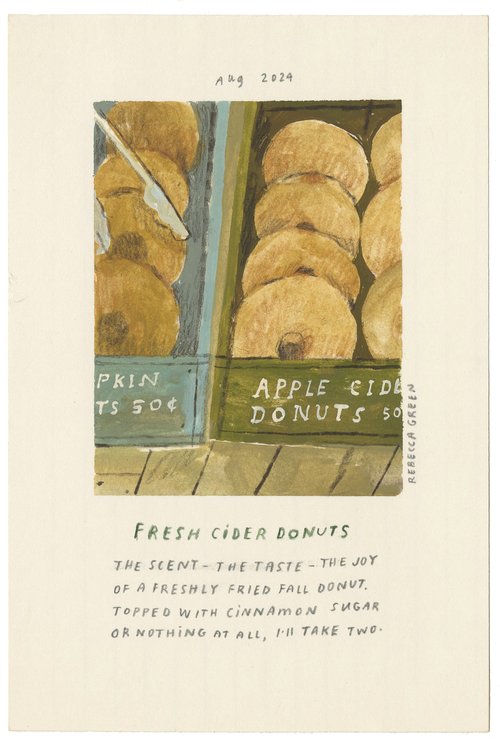 Aug 2024
PKIN
TS 50¢
APPLE CIDE
DONUTS 50
REBECCA GREEN
FRESH CiDER DONUTS
THE SCENT - THE TASTE - THE JOY
OF A FRESHLY FRIED FALL DONUT.
TOPPED WITH CiNNAMON SUGAR
OR NOTHING AT ALL, I'll TAKE TWO.